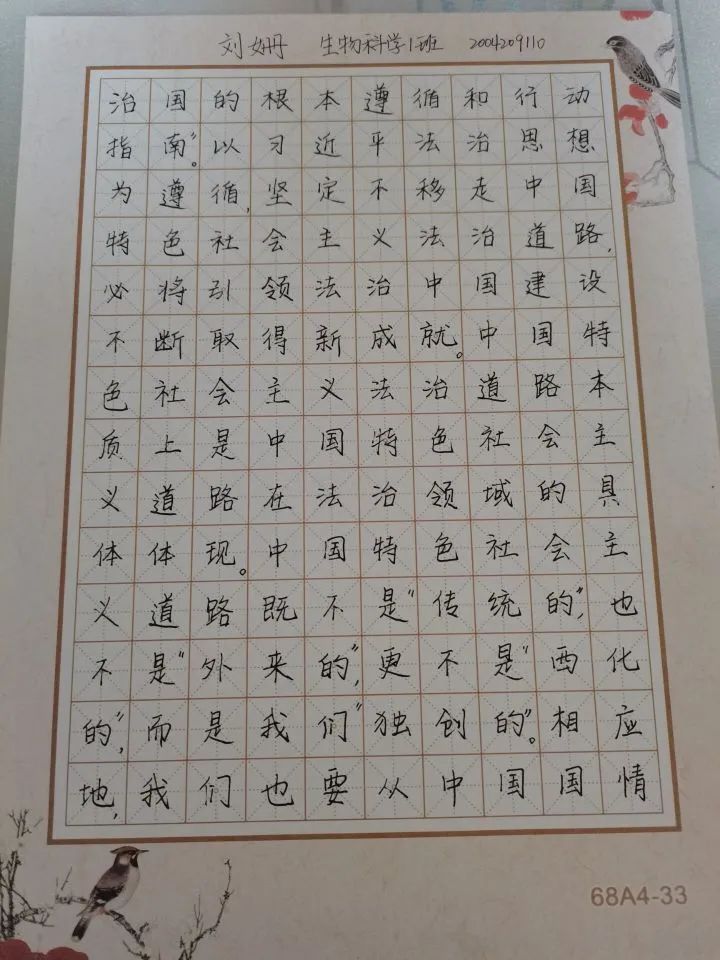 刘姗丹 生物科学1班 2004209110
治国的根本遵循和行动
指南”。以习近平法治思想
为遵循,坚定不移走中国
特色社会主义法治道路,
必将引领法治中国建设
不断取得新成就。中国特
色社会主义法治道路本
质上是中国特色社会主
义道路在法治领域的具
体体现。中国特色社会主
义道路既不是“传统的”,也
不是“外来的”,更不是“西化
的”,而是我们“独创的”。相应
地,我们也要从中国国情
68A4-33